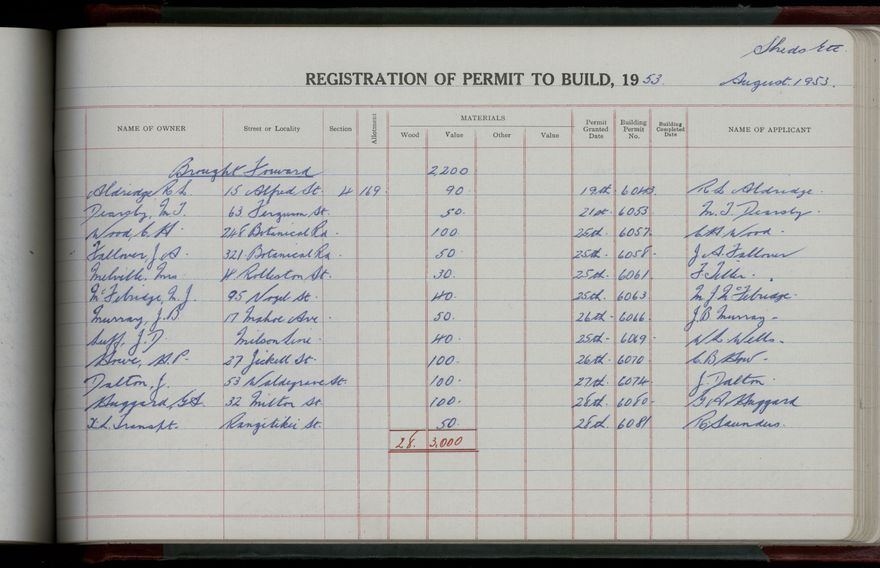 Sheds Etc.
REGISTRATION OF PERMIT TO BUILD, 1953. August. 1953.
NAME OF OWNER Street or Locality Section Allotment MATERIALS Permit Granted Date Building Permit No. Building Completed Date NAME OF APPLICANT
Wood Value Other Value
Brought Forward 2200
Aldridge R.L. 15 Alfred St. 14 169 90. 19th. 6043 R L Aldridge.
Dearsly, M.J. 63 Ferguson St. 50. 21st. 6053 M. J. Dearsly.
Wood, C H. 248 Botanical Rd. 100. 25th. 6057. C H Wood.
Fallover, J A. 321 Botanical Rd. 50. 25th. 6058. J A Fallover
Melville. Mrs 4 Rolleston St. 30. 25th. 6061
95 Vogel St. 40. 25th. 6063
Murray, J.B. 17 Mahoe Ave. 50. 26th. 6066. J.B Murray.
J. D. Milson Line. 40. 25th. 6069. Wells.
27 Jickell St. 100. 26th. 6070. C B
Dalton, J. 53 Waldegrave St. 100. 27th. 6074. J. Dalton.
Huggard, G A. 32 Milton St. 100. 28th. 6080. G A Huggard
Rangitikei St. 50. 28th. 6081 R. Saunders.
28. 3,000